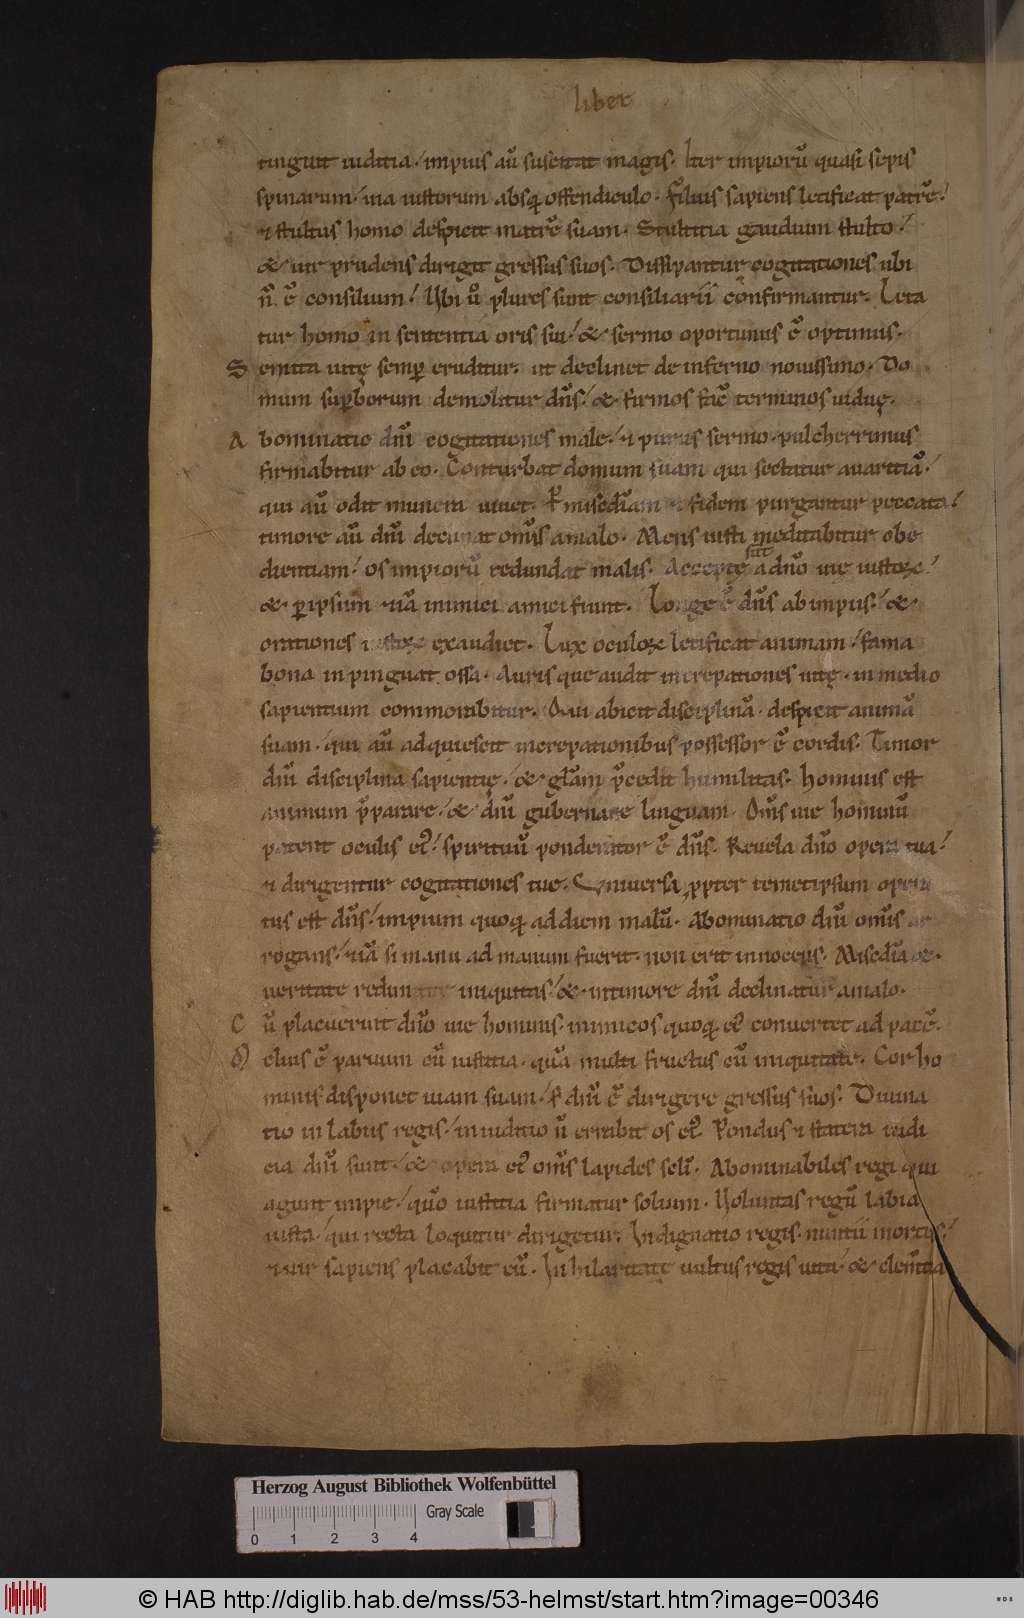 liber
tinguit iuditia / impius aū suscitat magis. Iter impiorū quasi sepis
spinarum / uia iustorum absq; offendiculo. Filius sapiens letificat patrē /
⁊ stultus homo despicit matrē suam. Stultitia gaudium stulto /
& uir prudens dirigit gressus suos. Dissipantur cogitationes ubi
n̄ ē consilium / Ubi u͛o plures sunt consiliarii confirmantur. Leta
tur homo in sententia oris sui / & sermo oportunus ē optimus.
Semita uitę semꝑ eruditum. ut declinet de inferno nouissimo. Do
mum suꝑborum demolitur dn̄s / & firmos faĉ terminos uiduę.
Abominatio dn̄i cogitationes male / ⁊ purus sermo. pulcherrimus
firmabitur ab eo. Conturbat domum suam qui sectatur auaritiā. /
qui aū odit munera uiuet. P̱ misēdiam ⁊ fidem purgantur peccata /
timore aū dn̄i declinat om̄is a malo. Mens iusti meditabitur obe
dientiam / os impiorū redundat malis. Acceptę sūt a dn̄o uie iustoꝝ /
& ꝑ ipsum etiā inimici amici fiunt. Longe ē dn̄s ab impiis / &
orationes iustoꝝ exaudiet. Lux oculoꝝ letificat animam / fama
bona inpinguat ossa. Auris que audit increpationes uitę. in medio
sapientium commorabitur. Qui abicit disciplinā. despicit animā
suam. qui aū adquiescit increpationibus possessor ē cordis. Timor
dn̄i disciplina sapientię. / & glām p̄cedit humilitas. Hominis est
animum p̄parare / & dn̄i gubernare linguam. Om̄s uie hominū
patent oculis ei᷒ / spirituū ponderator ē dn̄s. Reuela dn̄o opera tua /
⁊ dirigentur cogitationes tue. Uniuersa ꝓpter temetipsum opera
tus est dn̄s / impium quoq; ad diem malū. Abominatio dn̄i om̄is ar
rogans. / etiā si manu ad manum fuerit. non erit innocens. Misēdia &
ueritate redimitur iniquitas / & in timore dn̄i declinatur a malo.
Cū placuerint dn̄o uie hominis. inimicos quoq; ei᷒ conuertet ad pacē.
Melius ē parum cū iustitia. quā multi fructus cū iniquitate. Cor ho
minis disponet uiam suam / s dn̄i ē dirigere gressus suos. Diuina
tio in labiis regis / in iuditio ñ errabit os ei᷒. Pondus ⁊ statera iudi
cia dn̄i sunt / & opera ei᷒ om̄s lapides seli͛. Abominabiles regi qui
agunt impie / quō iustitia firmatur solium. Uoluntas regū labia
iusta / qui recta loquitur dirigetur. Indignatio regis. nuntii mortis /
⁊ uir sapiens placabit eū. In hilaritate uultus regis uita / & clem̄tia
Herzog August Bibliothek Wolfenbüttel
Gray Scale
0 1 2 3 4
© HAB http://diglib.hab.de/mss/53-helmst/start.htm?image=00346